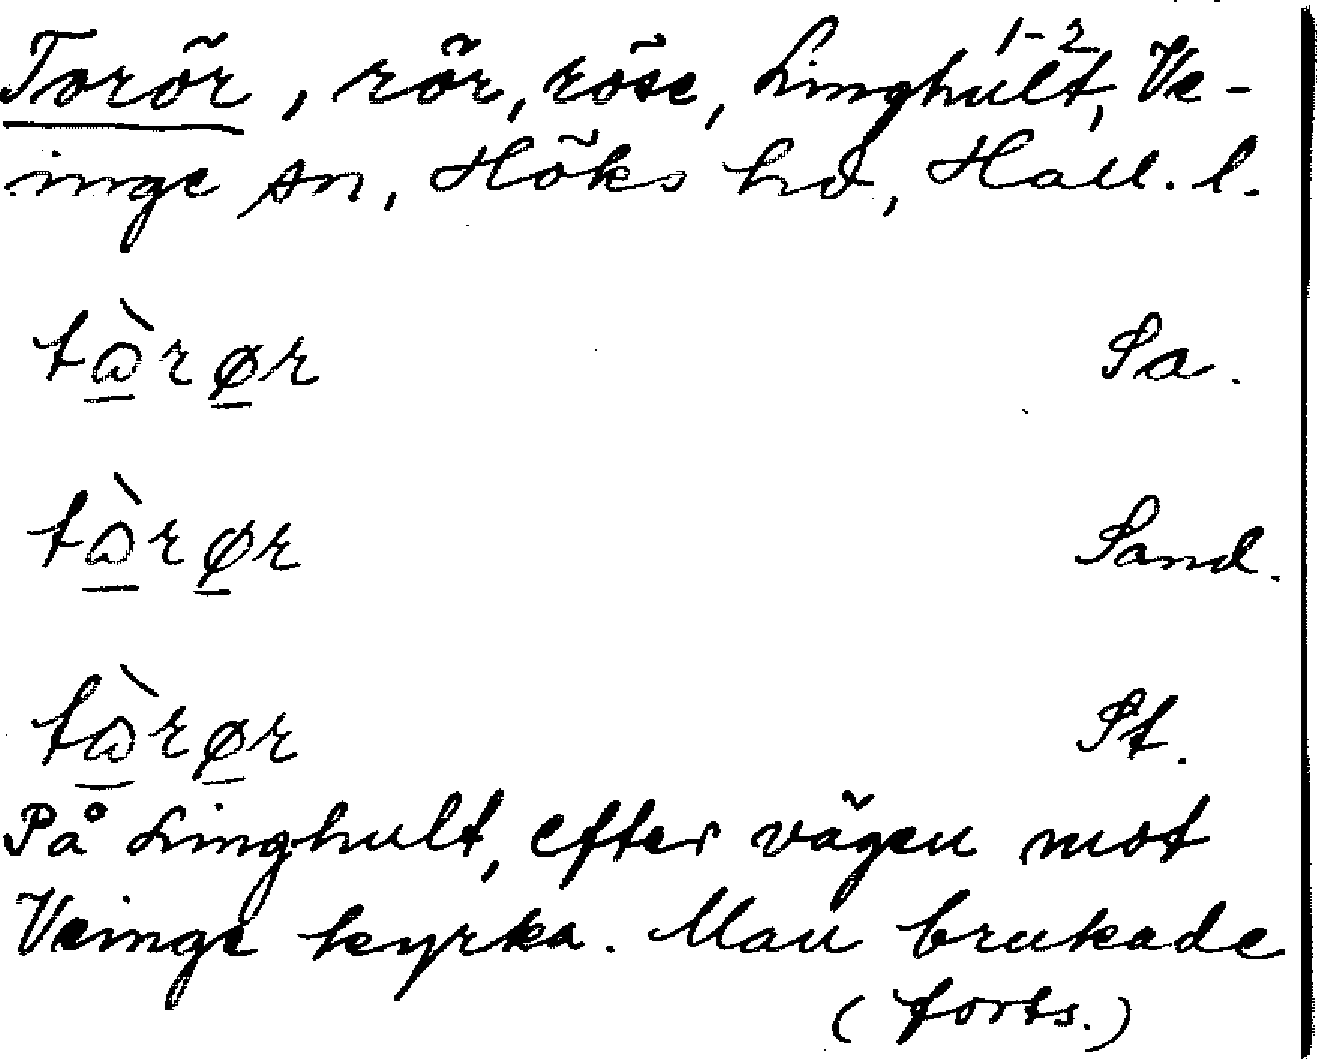 Torör, rör, röse, Linghult 1-2, Ve-
inge sn, Höks hd, Hall. l.
tɷ̀rør Sa.
tɷ̀rør Sand.
tɷ̀rør St.
På Linghult, efter vägen mot
Veinge kyrka. Man brukade
(forts.)